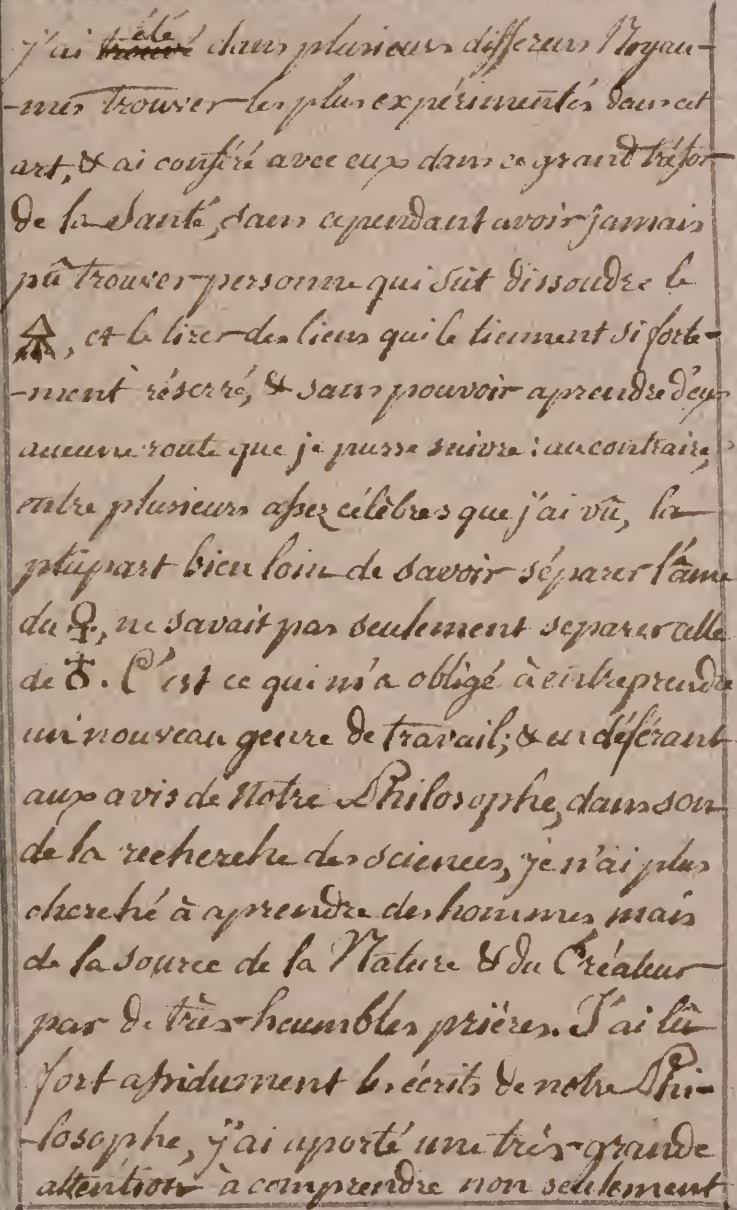 j'ai été dans plusieurs differens Royau-
-mes trouver les plus expérimentés dans cet
art, & ai conféré avec eux dans ce grand trésor
de la Santé, sans cependant avoir jamais
pû trouver personne qui sut dissoudre le
, et le tirer des liens qui le tiennent si forte-
-ment réserré, & sans pouvoir aprendre d'eux
aucune route que je pusse suivre : au contraire,
entre plusieurs assez célèbres que j'ai vû, la
plûpart bien loin de savoir séparer l'âme
du ☿, ne savait pas seulement separer celle
de ♁. C'est ce qui m'a obligé à entreprendre
un nouveau genre de travail; & en déférant
aux avis de Notre Philosophe, dans son
de la recherche des sciences, je n'ai plus
cherché à aprendre des hommes mais
de la source de la Nature & du Créateur
par de très-heumbles prières. J'ai lû
fort assidument les écrits de notre Phi-
-losophe, j'ai aporté une très-grande
attention à comprendre non seulement